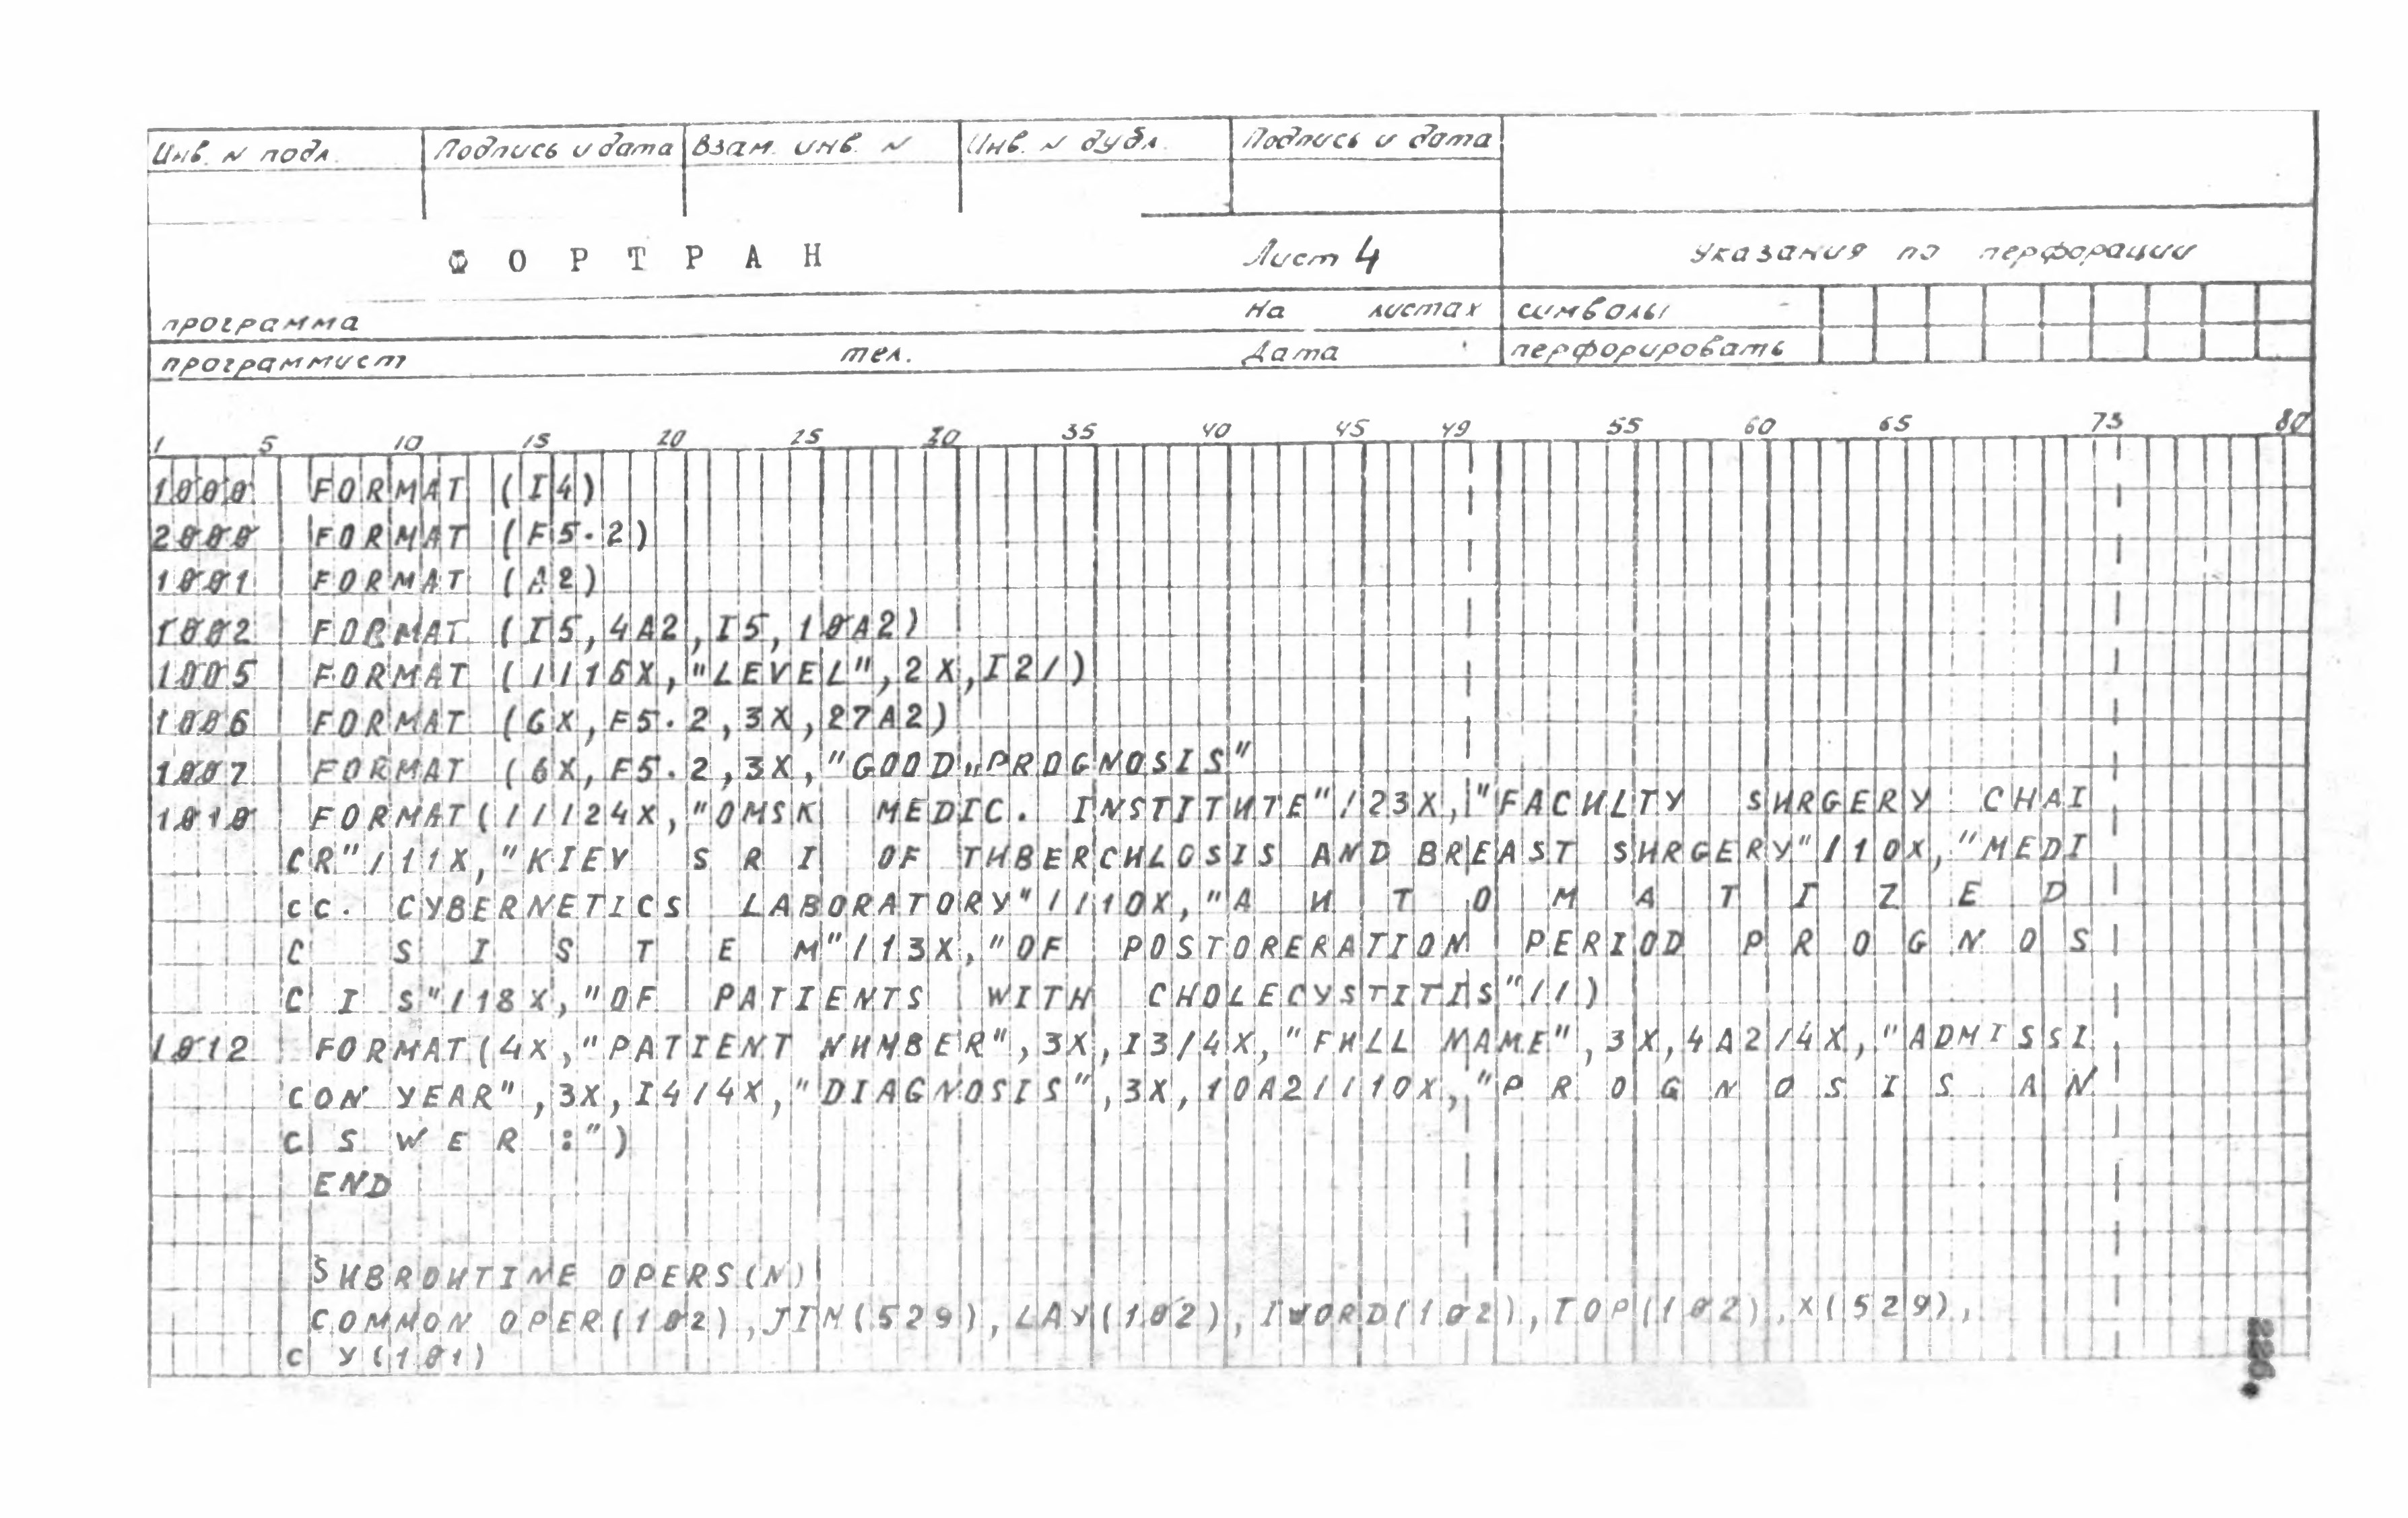 Инв. N подл. Подпись и дата Взам. инв. N Инв. N дубл. Подпись и дата
Ф О Р Т Р А Н Лист 4 Указания по перфорации
программа На листах символы
программист тел. Дата перфорировать
1 5 10 15 20 25 30 35 40 45 49 55 60 65 73 80
1000 FORMAT (I4)
2000 FORMAT (F5.2)
1001 FORMAT (A2)
1002 FORMAT (I5,4A2,I5,10A2)
1005 FORMAT (///16X,"LEVEL",2X,I2/)
1006 FORMAT (6X,F5.2,3X,27A2)
1007 FORMAT (6X,F5.2,3X,"GOOD„PROGNOSIS"
1010 FORMAT(///24X,"OMSK MEDIC. INSTITUTE"/23X,"FACULTY SURGERY CHAI
CR"/11X,"KIEV S R I OF TUBERCULOSIS AND BREAST SURGERY"/10X,"MEDI
CC. CYBERNETICS LABORATORY"//10X,"A U T O M A T I Z E D
C S I S T E M"/13X,"OF POSTORERATION PERIOD P R O G N O S
C I S"/18X,"OF PATIENTS WITH CHOLECYSTITIS"//)
1012 FORMAT(4X,"PATIENT NUMBER",3X,I3/4X,"FULL NAME",3X,4A2/4X,"ADMISSI
CON YEAR",3X,I4/4X,"DIAGNOSIS",3X,10A2//10X,"P R O G N O S I S A N
C S W E R :")
END
SUBROUTINE OPERS(N)
COMMON OPER(102),JIN(529),LAY(102),IWORD(102),TOP(102),X(529),
C Y(101)
226.